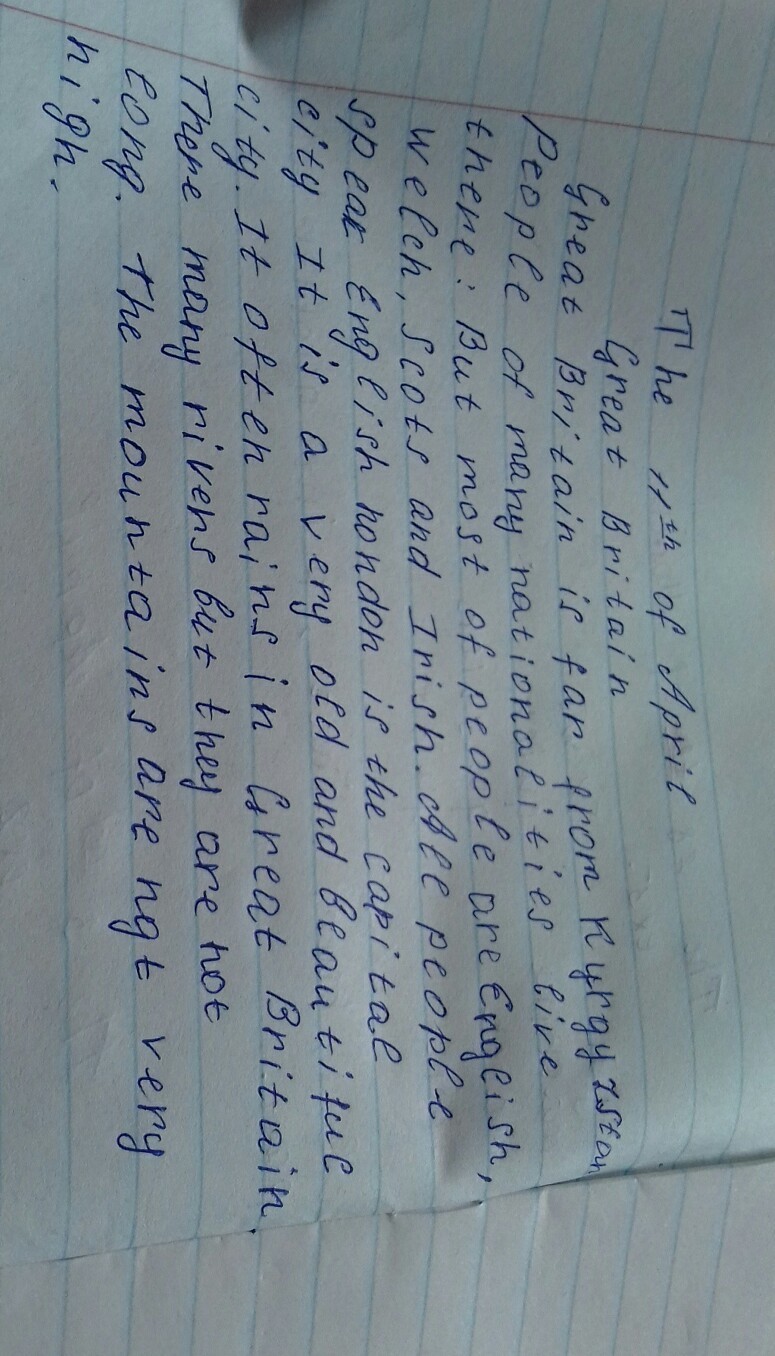 The 11th of April
Great Britain
Great Britain is far from Kyrgyzstan
People of many nationalities live
there: But most of people are English,
Welch, Scots and Irish. All people
speak English London is the capital
city It is a very old and beautiful
city. It often rains in Great Britain.
There many rivers but they are not
long. The mountains are not very
high.